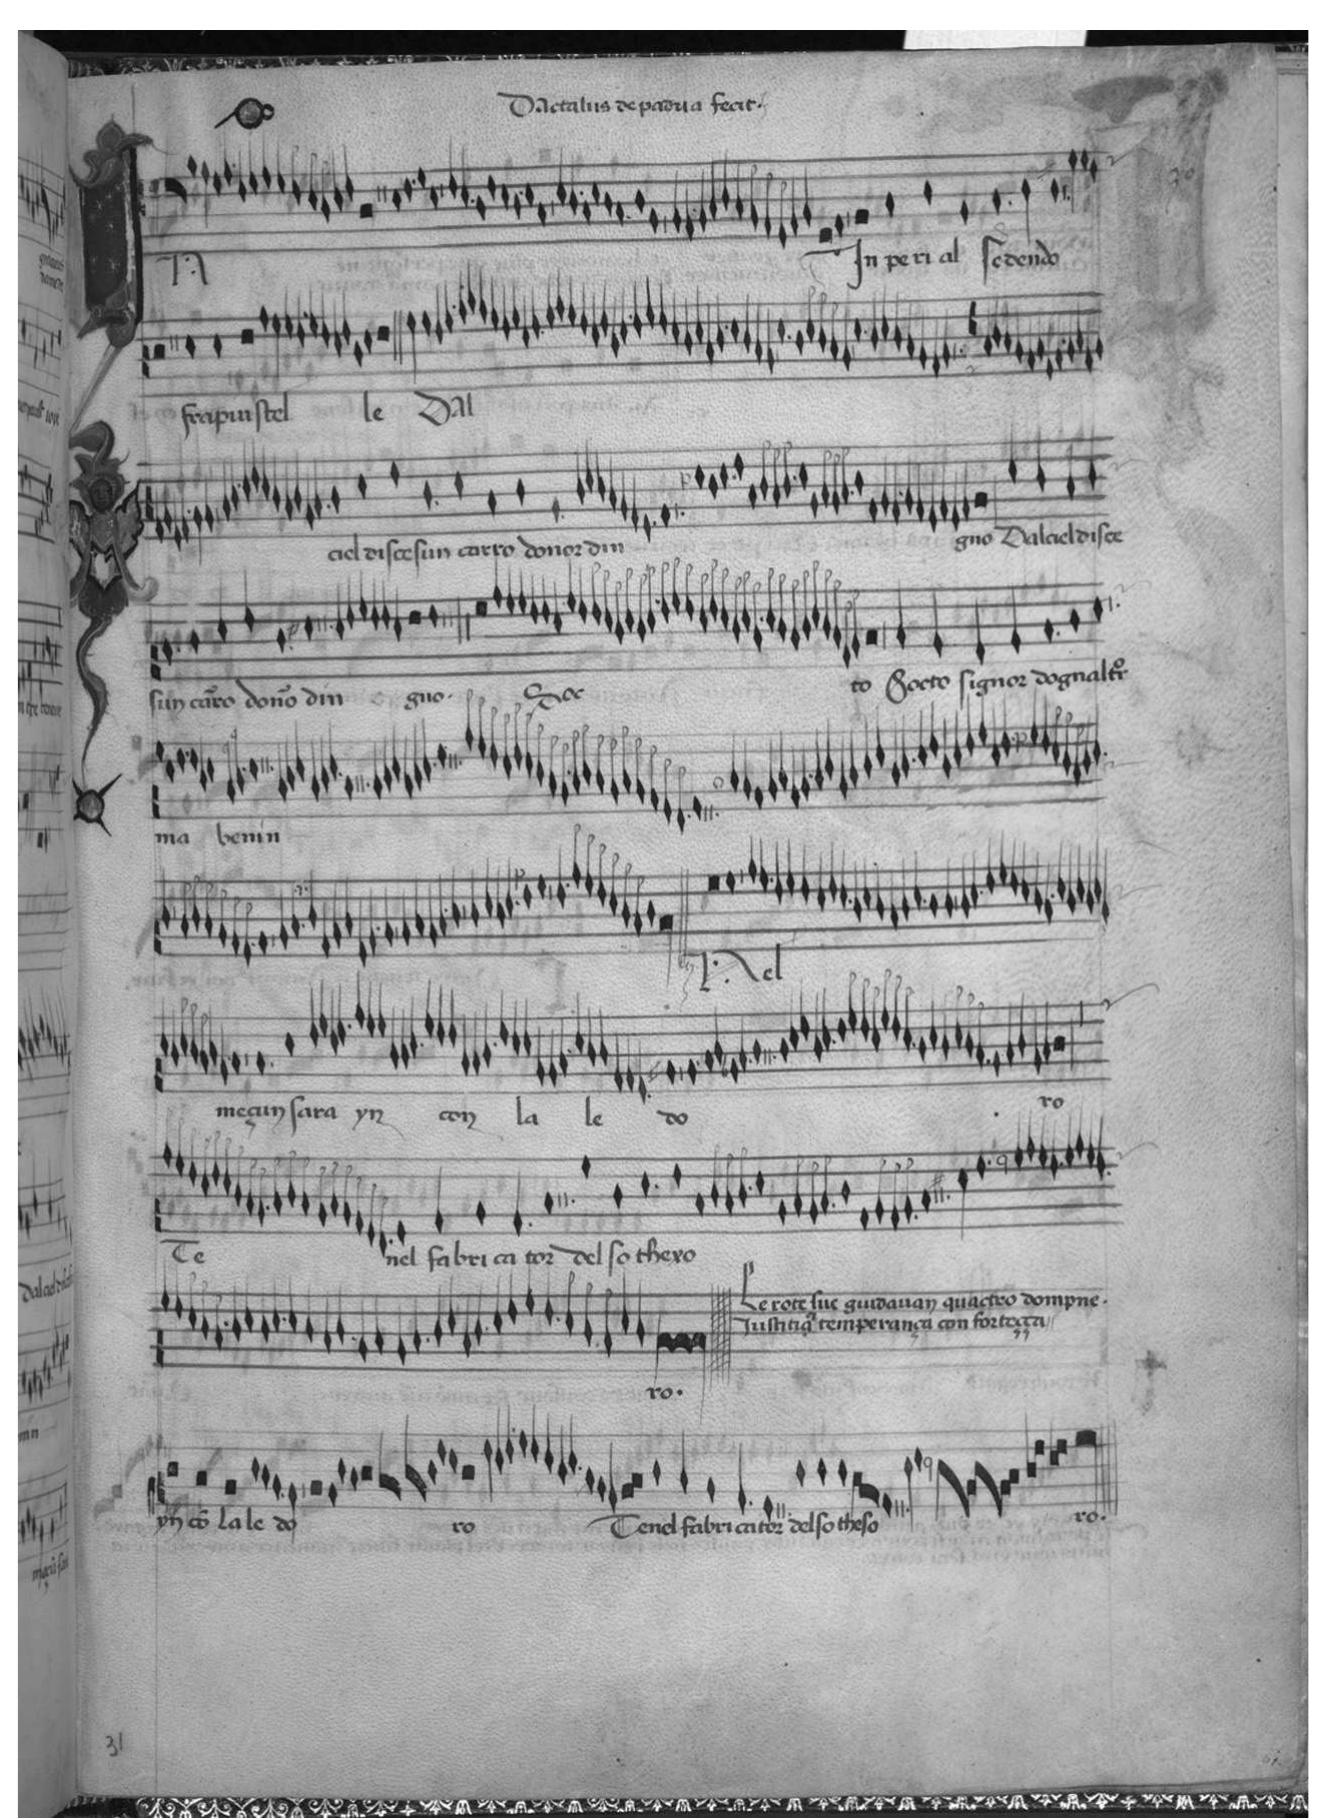 Dactalus de padua fecit.
In peri al sedendo
fra piu stel le Dal
ciel disce sun carro donor din gno Dal ciel disce
sun caro dono din gno. Soc to Socto signor dognaltr
ma benin
Nel
meçun sara yn con la le do ro
Te nel fabri ca tor del so thexo
Le rote sue guidavan quactro dompne.
Justitia temperança con forteçça
ro.
yn co la le do ro Tenel fabri cator del so theso ro.
31